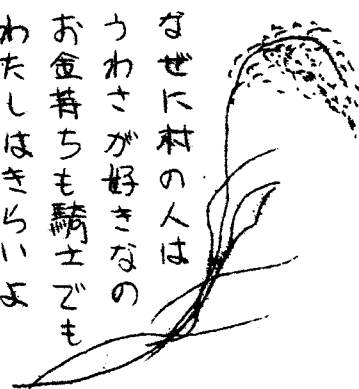 なぜに村の人は
うわさが好きなの
お金持ちも騎士でも
わたしはきらいよ